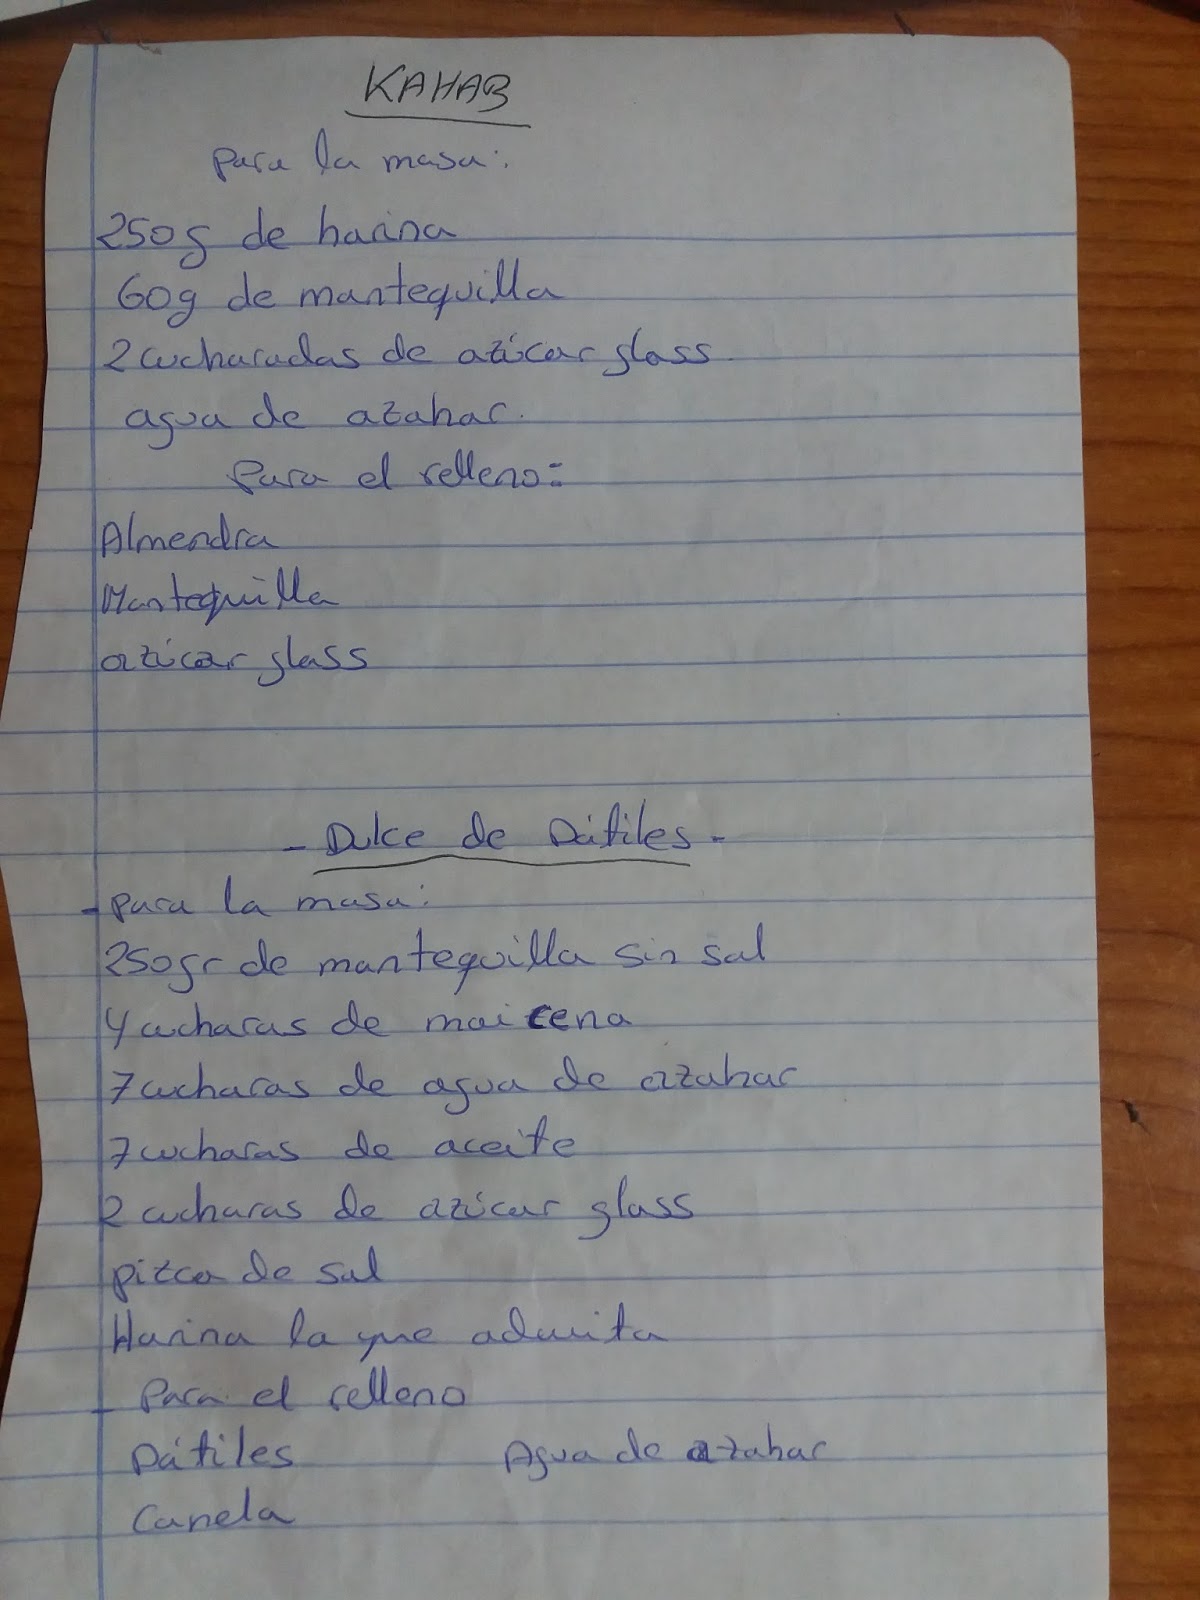 KAHAB
para la masa:
250g de harina
60g de mantequilla
2 cucharadas de azúcar glass
agua de azahar.
Para el relleno:
Almendra
Mantequilla
azúcar glass
- Dulce de Dátiles -
- para la masa:
250gr de mantequilla sin sal
4 cucharas de maicena
7 cucharas de agua de azahar
7 cucharas de aceite
2 cucharas de azúcar glass
pizca de sal
Harina la que admita
- Para el relleno
Dátiles Agua de azahar
Canela